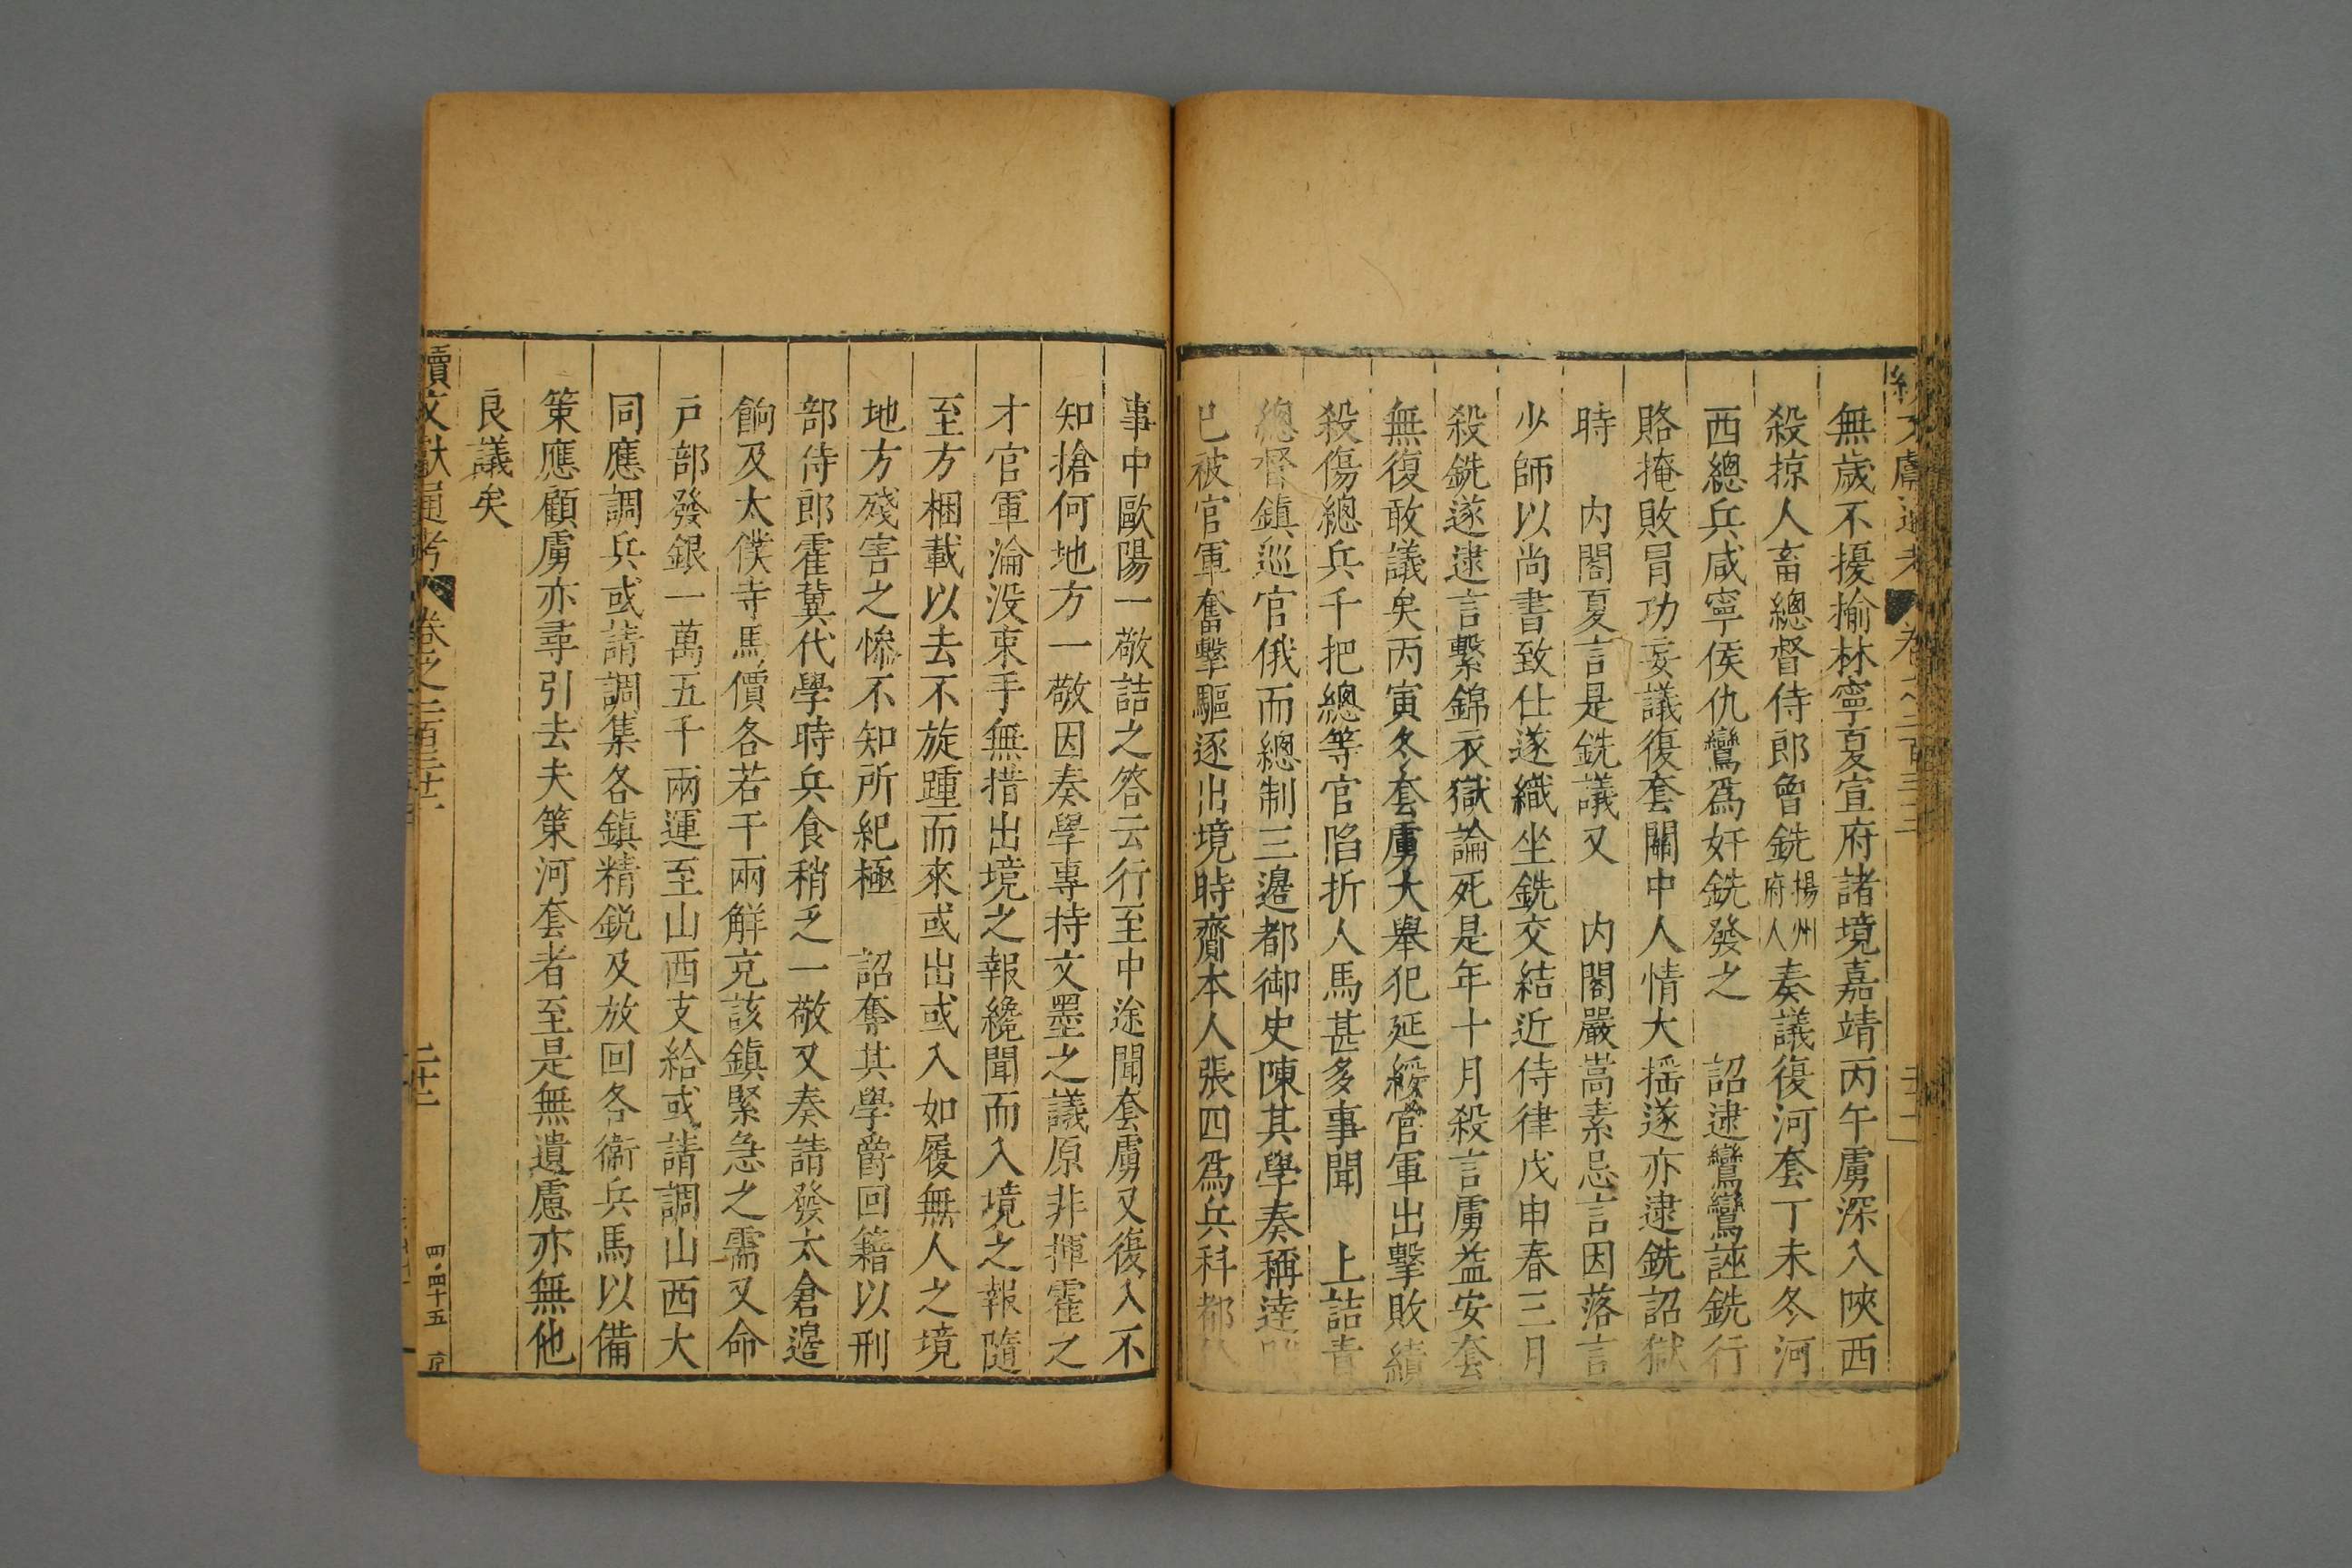 無歲不擾揄林寧夏宣府諸境嘉靖丙午虜深入陜西
殺掠人畜總督侍郎曾銑揚州府人奏議復河套丁未冬河
西總兵咸寧侯仇鸞爲奸銑發之　詔逮鸞鸞誣銑行
賂掩敗冒功妄議復套關中人情大揺遂亦逮銑詔獄
時　内閣夏言是銑議又　内閣嚴嵩素忌言因落言
少師以尚書致仕遂織坐銑交結近侍律戊申春三月
殺銑遂逮言繫錦衣獄論死是年十月殺言虜益安套
無復敢議矣丙寅冬套虜大舉犯延綏官軍出擊敗績
殺傷總兵千把總等官陷折人馬甚多事聞　上詰責
總督鎮巡官俄而總制三邉都御史陳其學奏稱逹
已被官軍奮擊驅逐出境時齎本人張四爲兵科都
事中歐陽一敬詰之答云行至中途聞套虜又復入不
知搶何地方一敬因奏學專持文墨之議原非揮霍之
才官軍淪没束手無措出境之報纔聞而入境之報隨
至方梱載以去不旋踵而來或出或入如履無人之境
地方殘害之慘不知所紀極　詔奪其學爵回籍以刑
部侍郎霍冀代學時兵食稍乏一敬又奏請發太倉邉
餉及太僕寺馬價各若干兩觧克該鎮緊急之需又命
戸部發銀一萬五千兩運至山西支給或請調山西大
同應調兵或請調集各鎮精銳及放回各衞兵馬以備
策應顧虜亦尋引去夫策河套者至是無遺慮亦無他
良議矣
續文獻通考　卷之二百三十二　二十二　四·四十五